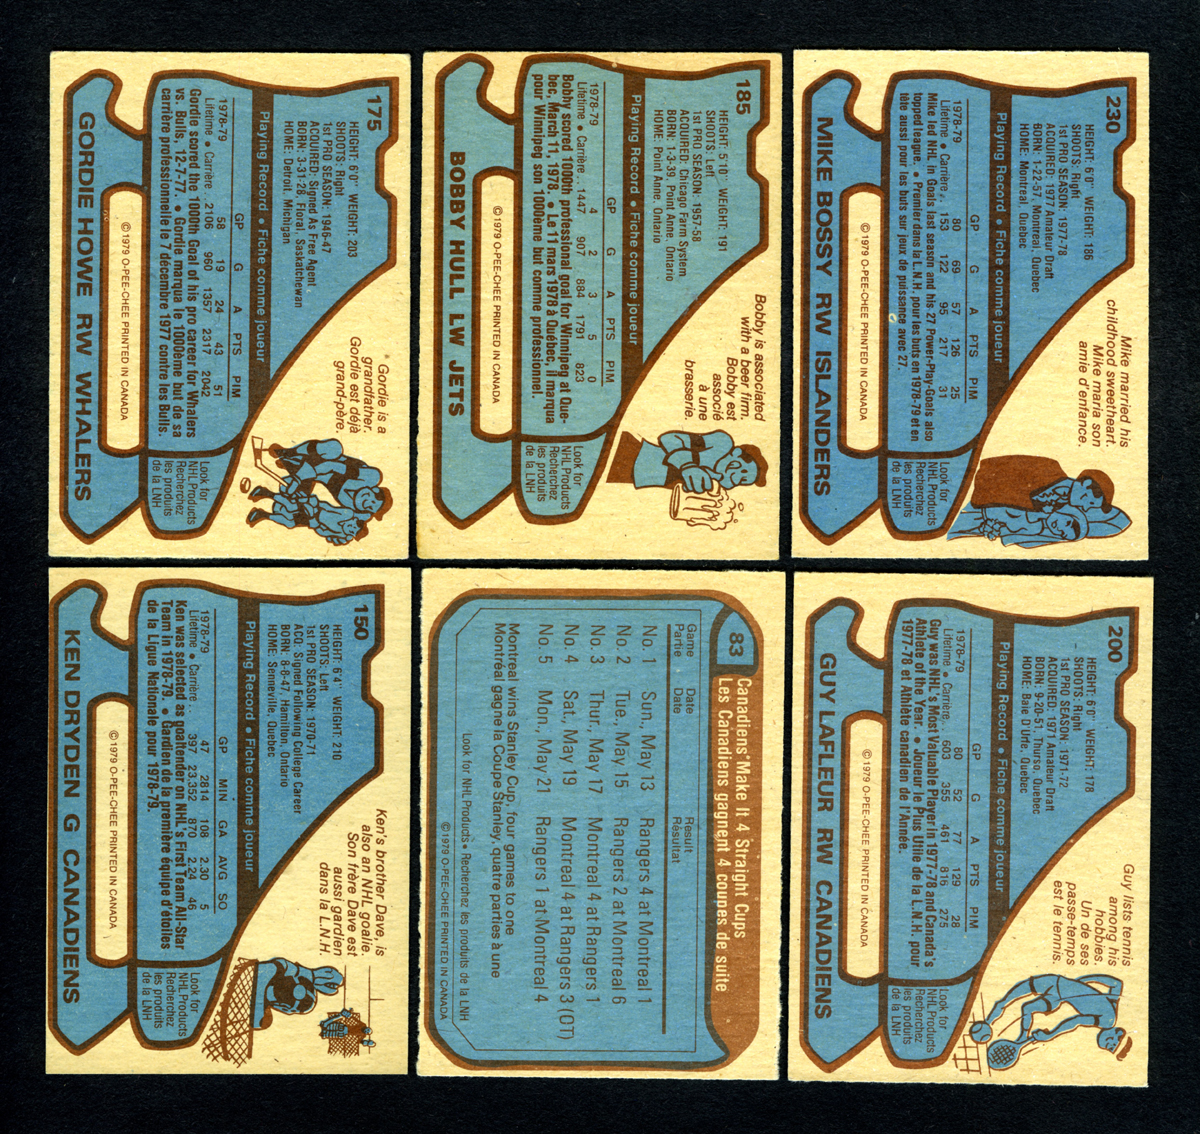 175
HEIGHT: 6'0" WEIGHT: 203
SHOOTS: Right
1st PRO SEASON: 1946-47
ACQUIRED: Signed As Free Agent
BORN: 3-31-28, Floral, Saskatchewan
HOME: Detroit, Michigan
Gordie is a
grandfather.
Gordie est déjà
grand-père.
Playing Record • Fiche comme joueur
GP G A PTS PIM
1978-79 58 19 24 43 51
Lifetime • Carrière. 2106 990 1357 2317 2042
Gordie scored the 1000th Goal of his pro career for Whalers
vs. Bulls, 12-7-77. • Gordie marqua le 1000ème but de sa
carrière professionnelle le 7 décembre 1977 contre les Bulls.
Look for
NHL Products
Recherchez
les produits
de la LNH
© 1979 O-PEE-CHEE PRINTED IN CANADA
GORDIE HOWE RW WHALERS
185
HEIGHT: 5'10" WEIGHT: 191
SHOOTS: Left
1st PRO SEASON: 1957-58
ACQUIRED: Chicago Farm System
BORN: 1-3-39, Point Anne, Ontario
HOME: Point Anne, Ontario
Bobby is associated
with a beer firm.
Bobby est
associé
à une
brasserie.
Playing Record • Fiche comme joueur
GP G A PTS PIM
1978-79 4 2 3 5 0
Lifetime • Carrière. 1447 907 884 1791 823
Bobby scored 1000th professional goal for Winnipeg at Que-
bec, March 11, 1978. • Le 11 mars 1978 à Québec, il marqua
pour Winnipeg son 1000ème but comme professionnel.
Look for
NHL Products
Recherchez
les produits
de la LNH
© 1979 O-PEE-CHEE PRINTED IN CANADA
BOBBY HULL LW JETS
230
HEIGHT: 6'0" WEIGHT: 186
SHOOTS: Right
1st PRO SEASON: 1977-78
ACQUIRED: 1977 Amateur Draft
BORN: 1-22-57, Montreal, Quebec
HOME: Montreal, Quebec
Mike married his
childhood sweetheart.
Mike maria son
amie d'enfance.
Playing Record • Fiche comme joueur
GP G A PTS PIM
1978-79 80 69 57 126 25
Lifetime • Carrière. 153 122 95 217 31
Mike led NHL in Goals last season and his 27 Power-Play-Goals also
topped league. • Premier dans la L.N.H. pour les buts en 1978-79 et en
tête aussi pour les buts sur jeux de puissance avec 27.
Look for
NHL Products
Recherchez
les produits
de la LNH
© 1979 O-PEE-CHEE PRINTED IN CANADA
MIKE BOSSY RW ISLANDERS
150
HEIGHT: 6'4" WEIGHT: 210
SHOOTS: Left
1st PRO SEASON: 1970-71
ACQ: Signed Following College Career
BORN: 8-8-47, Hamilton, Ontario
HOME: Senneville, Quebec
Ken's brother Dave, is
also an NHL goalie.
Son frère Dave est
aussi gardien
dans la L.N.H.
Playing Record • Fiche comme joueur
GP MIN GA AVG SO
1978-79 47 2814 108 2.30 5
Lifetime • Carrière. 397 23,352 870 2.24 46
Ken was selected as goaltender on NHL's First Team All-Star
Team in 1978-79. • Gardien de la première équipe d'étoiles
de la Ligue Nationale pour 1978-79.
Look for
NHL Products
Recherchez
les produits
de la LNH
© 1979 O-PEE-CHEE PRINTED IN CANADA
KEN DRYDEN G CANADIENS
83
Canadiens Make It 4 Straight Cups
Les Canadiens gagnent 4 coupes de suite
Game Date Result
Partie Date Résultat
No. 1 Sun., May 13 Rangers 4 at Montreal 1
No. 2 Tue., May 15 Rangers 2 at Montreal 6
No. 3 Thur., May 17 Montreal 4 at Rangers 1
No. 4 Sat., May 19 Montreal 4 at Rangers 3 (OT)
No. 5 Mon., May 21 Rangers 1 at Montreal 4
Montreal wins Stanley Cup, four games to one
Montréal gagne la Coupe Stanley, quatre parties à une
Look for NHL Products • Recherchez les produits de la LNH
© 1979 O-PEE-CHEE PRINTED IN CANADA
200
HEIGHT: 6'0" WEIGHT: 178
SHOOTS: Right
1st PRO SEASON: 1971-72
ACQUIRED: 1971 Amateur Draft
BORN: 9-20-51, Thurso, Quebec
HOME: Baie D'Urfe, Quebec
Guy lists tennis
among his
hobbies.
Un de ses
passe-temps
est le tennis.
Playing Record • Fiche comme joueur
GP G A PTS PIM
1978-79 80 52 77 129 28
Lifetime • Carrière. 603 355 461 816 275
Guy was NHL's Most Valuable Player in 1977-78 and Canada's
Athlete of the Year. • Joueur le Plus Utile de la L.N.H. pour
1977-78 et Athlète canadien de l'Année.
Look for
NHL Products
Recherchez
les produits
de la LNH
© 1979 O-PEE-CHEE PRINTED IN CANADA
GUY LAFLEUR RW CANADIENS